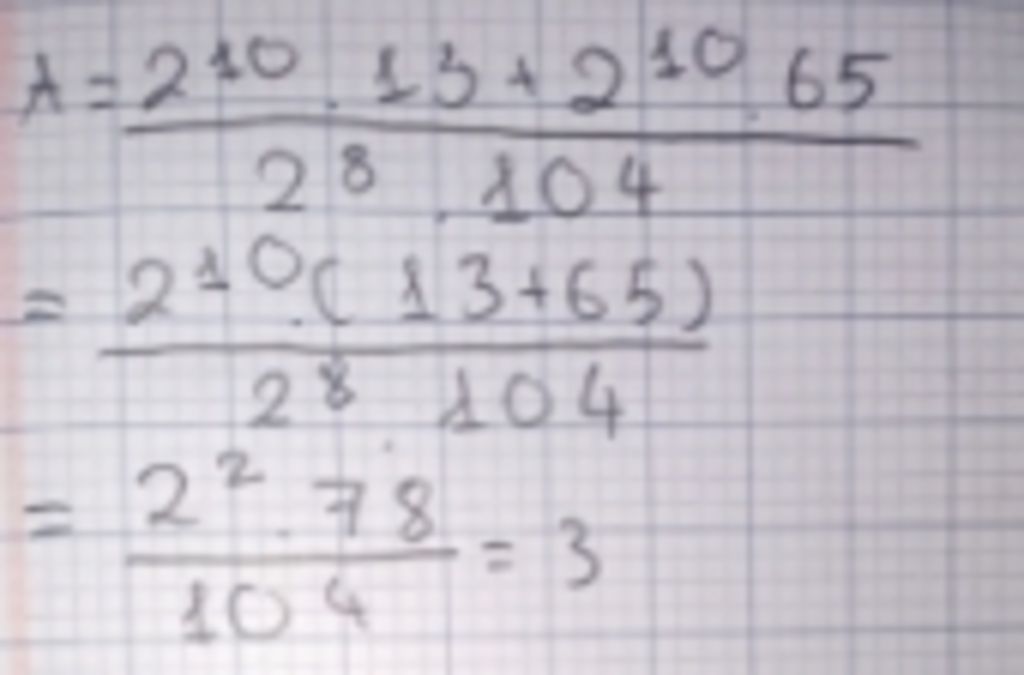 A = 2^10 . 13 + 2^10 . 65
2^8 . 104
= 2^10 . ( 13 + 65 )
2^8 . 104
= 2^2 . 78 = 3
104